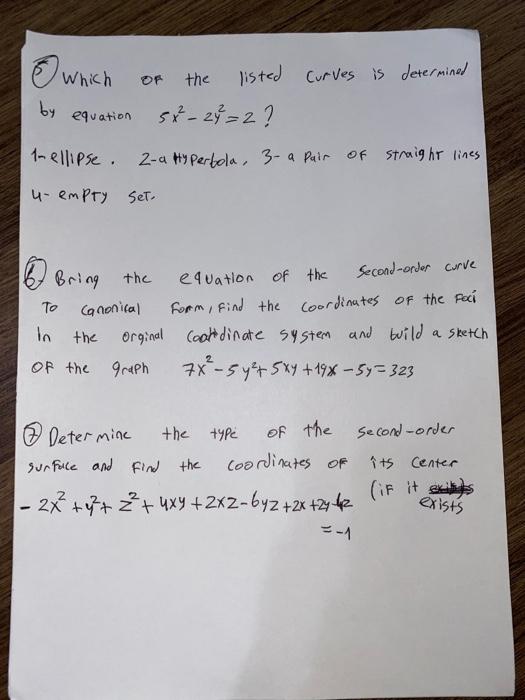 5 Which of the listed curves is determined
by equation 5x² - 2y² = 2 ?
1- ellipse. 2- a Hyperbola, 3- a Pair of straight lines
4- empty set.
6 Bring the equation of the second-order curve
To canonical form, find the coordinates of the foci
In the orginal coordinate system and build a sketch
of the graph 7x² - 5y² + 5xy + 19x - 5y = 323
7 Determine the type of the second-order
surface and find the coordinates of its center
(if it exists
- 2x² + y² + z² + 4xy + 2xz - 6yz + 2x + 2y
= -1